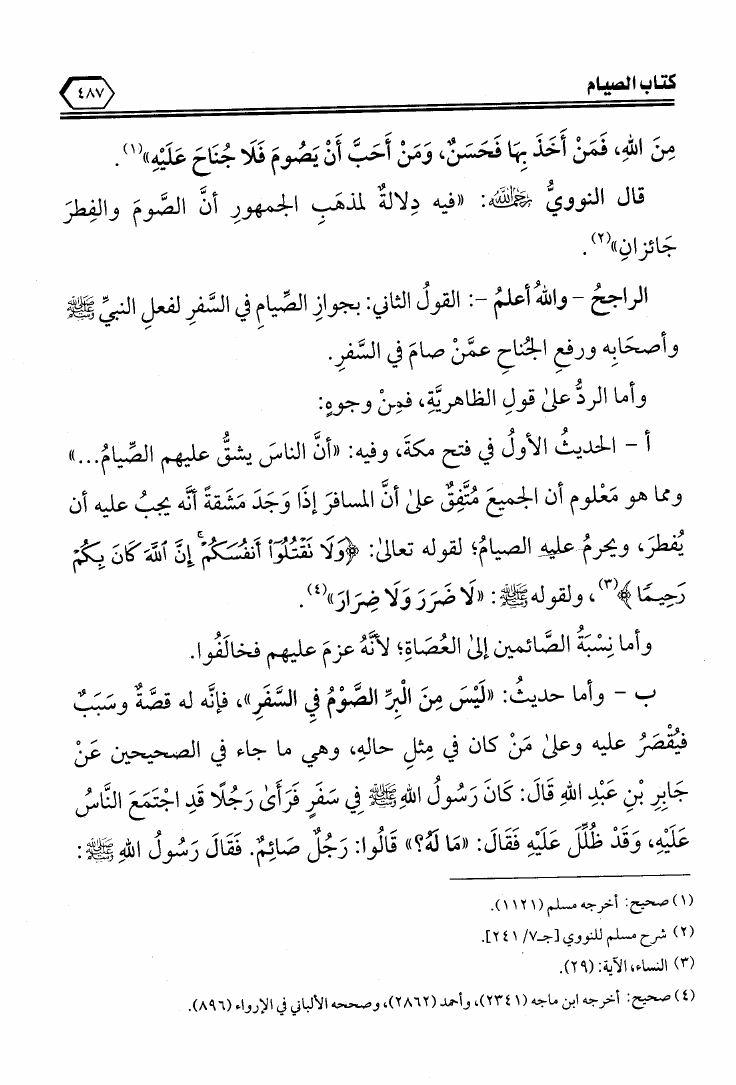 كتاب الصيام
٤٨٧
مِنَ اللهِ، فَمَنْ أَخَذَ بِهَا فَحَسَنٌ، وَمَنْ أَحَبَّ أَنْ يَصُومَ فَلَا جُنَاحَ عَلَيْهِ»(١).
قال النوويُّ رحمه الله: «فيه دِلالةٌ لمذهَبِ الجمهورِ أنَّ الصَّومَ والفِطرَ
جَائزانِ»(٢).
الراجحُ – واللهُ أعلمُ –: القولُ الثاني: بجوازِ الصِّيامِ في السَّفرِ لفعلِ النبيِّ ﷺ
وأصحَابِه ورفعِ الجُناحِ عمَّنْ صامَ في السَّفرِ.
وأما الردُّ علىٰ قولِ الظاهريَّةِ، فمِنْ وجوهٍ:
أ – الحديثُ الأولُ في فتح مكةَ، وفيه: «أنَّ الناسَ يشقُّ عليهم الصِّيامُ...»
ومما هو مَعْلوم أن الجميعَ مُتَّفِقٌ علىٰ أنَّ المسافرَ إذَا وَجَدَ مَشَقةً أنَّه يجبُ عليه أن
يُفطرَ، ويحرمُ عليه الصيامُ؛ لقوله تعالىٰ: ﴿وَلَا نَقْتُلُوٓا۟ أَنفُسَكُمْ ۚ إِنَّ ٱللَّهَ كَانَ بِكُمْ
رَحِيمًا﴾(٣)، ولقوله ﷺ: «لَا ضَرَرَ وَلَا ضِرَارَ»(٤).
وأما نِسْبَةُ الصَّائمين إلىٰ العُصَاةِ؛ لأنَّهُ عزمَ عليهم فخالَفُوا.
ب – وأما حديثُ: «لَيْسَ مِنَ الْبِرِّ الصَّوْمُ فِي السَّفَرِ»، فإنَّه له قصَّةٌ وسَبَبٌ
فيُقْصَرُ عليه وعلىٰ مَنْ كان في مِثلِ حالهِ، وهي ما جاء في الصحيحين عَنْ
جَابِرِ بْنِ عَبْدِ اللهِ قَالَ: كَانَ رَسُولُ اللهِ ﷺ فِي سَفَرٍ فَرَأَىٰ رَجُلًا قَدِ اجْتَمَعَ النَّاسُ
عَلَيْهِ، وَقَدْ ظُلِّلَ عَلَيْهِ فَقَالَ: «مَا لَهُ؟» قَالُوا: رَجُلٌ صَائِمٌ. فَقَالَ رَسُولُ اللهِ ﷺ:
(١) صحيح: أخرجه مسلم (١١٢١).
(٢) شرح مسلم للنووي [جـ٧/ ٢٤١].
(٣) النساء، الآية: (٢٩).
(٤) صحيح: أخرجه ابن ماجه (٢٣٤١)، وأحمد (٢٨٦٢)، وصححه الألباني في الإرواء (٨٩٦).